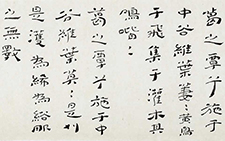 葛之覃兮施于
中谷維葉萋〻黃鳥
于飛集于灌木其
鳴喈〻
葛之覃兮施于中
谷維葉莫〻是刈
是濩為絺為綌服
之無斁